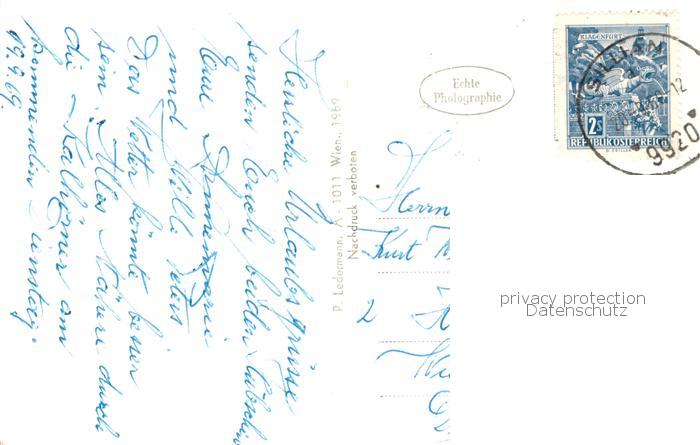 Herzliche Urlaubsgrüße
senden Euch beiden Hübschen
Eure Annemarie
und Willi Peters
Das Wetter könnte besser
sein. Alles Nähere durch
die am
kommenden Dienstag.
19.9.69
P. Ledermann, A - 1011 Wien, 1969
Nachdruck verboten
Echte
Photographie
KLAGENFURT
2S
REPUBLIK ÖSTERREICH
SILLIAN
9920
Herrn
Kurt
2
privacy protection
Datenschutz